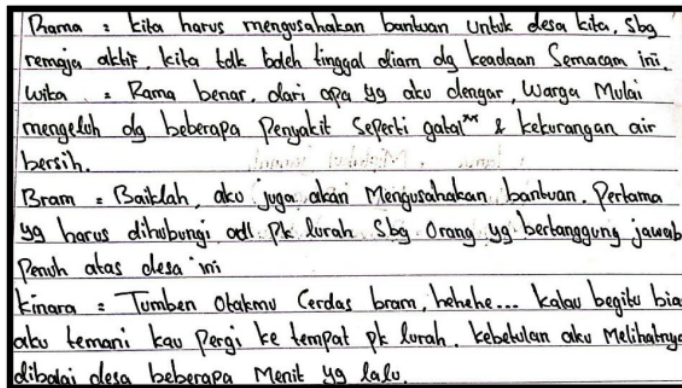 Rama : kita harus mengusahakan bantuan untuk desa kita, Sbg
remaja aktif, kita tdk boleh tinggal diam dg keadaan Semacam ini.
Wika : Rama benar, dari apa yg aku dengar, Warga Mulai
mengeluh dg beberapa Penyakit Seperti gatal" & kekurangan air
bersih.
Bram : Baiklah, aku juga akan Mengusahakan bantuan. Pertama
yg harus dihubungi adl Pk lurah Sbg Orang yg bertanggung jawab
Penuh atas desa ini
Kinara : Tumben Otakmu Cerdas bram, hehehe... kalau begitu bia
aku temani kau Pergi ke tempat pk lurah. kebetulan aku Melihatnya
dibalai desa beberapa Menit yg lalu.